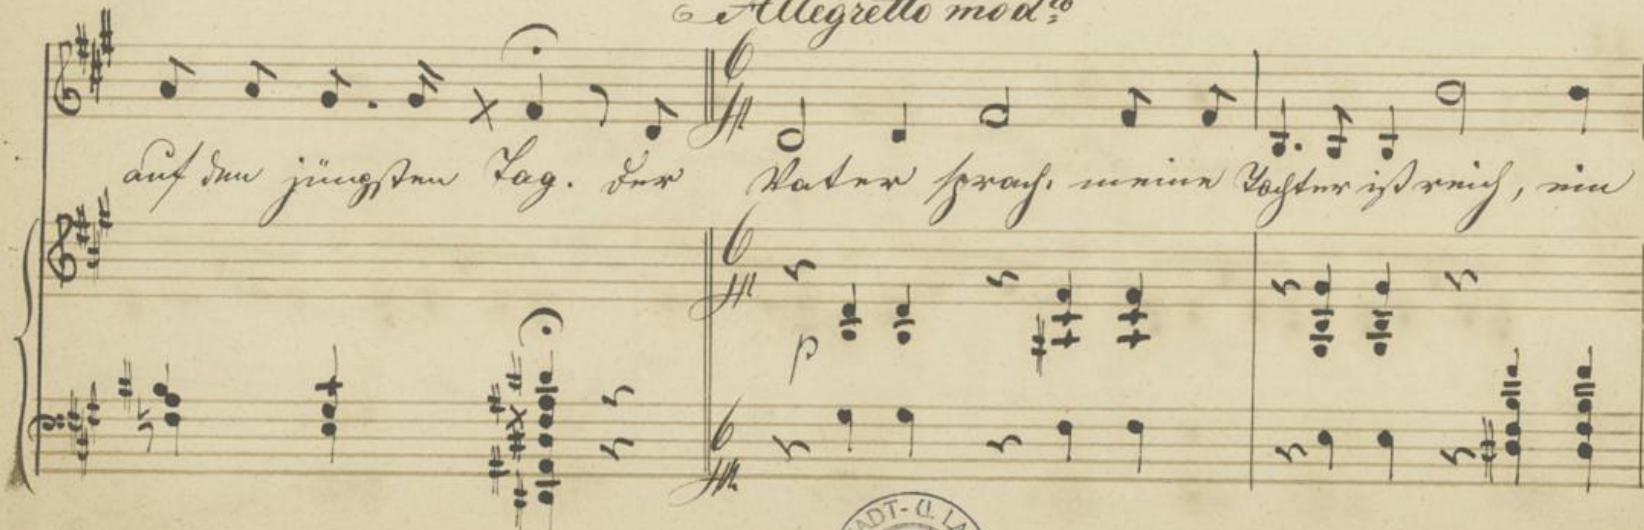 Allegretto mod.to
auf den jüngsten Tag. Der Vater sprach, meine Tochter ist reich, ein
p
STADT- U. LA